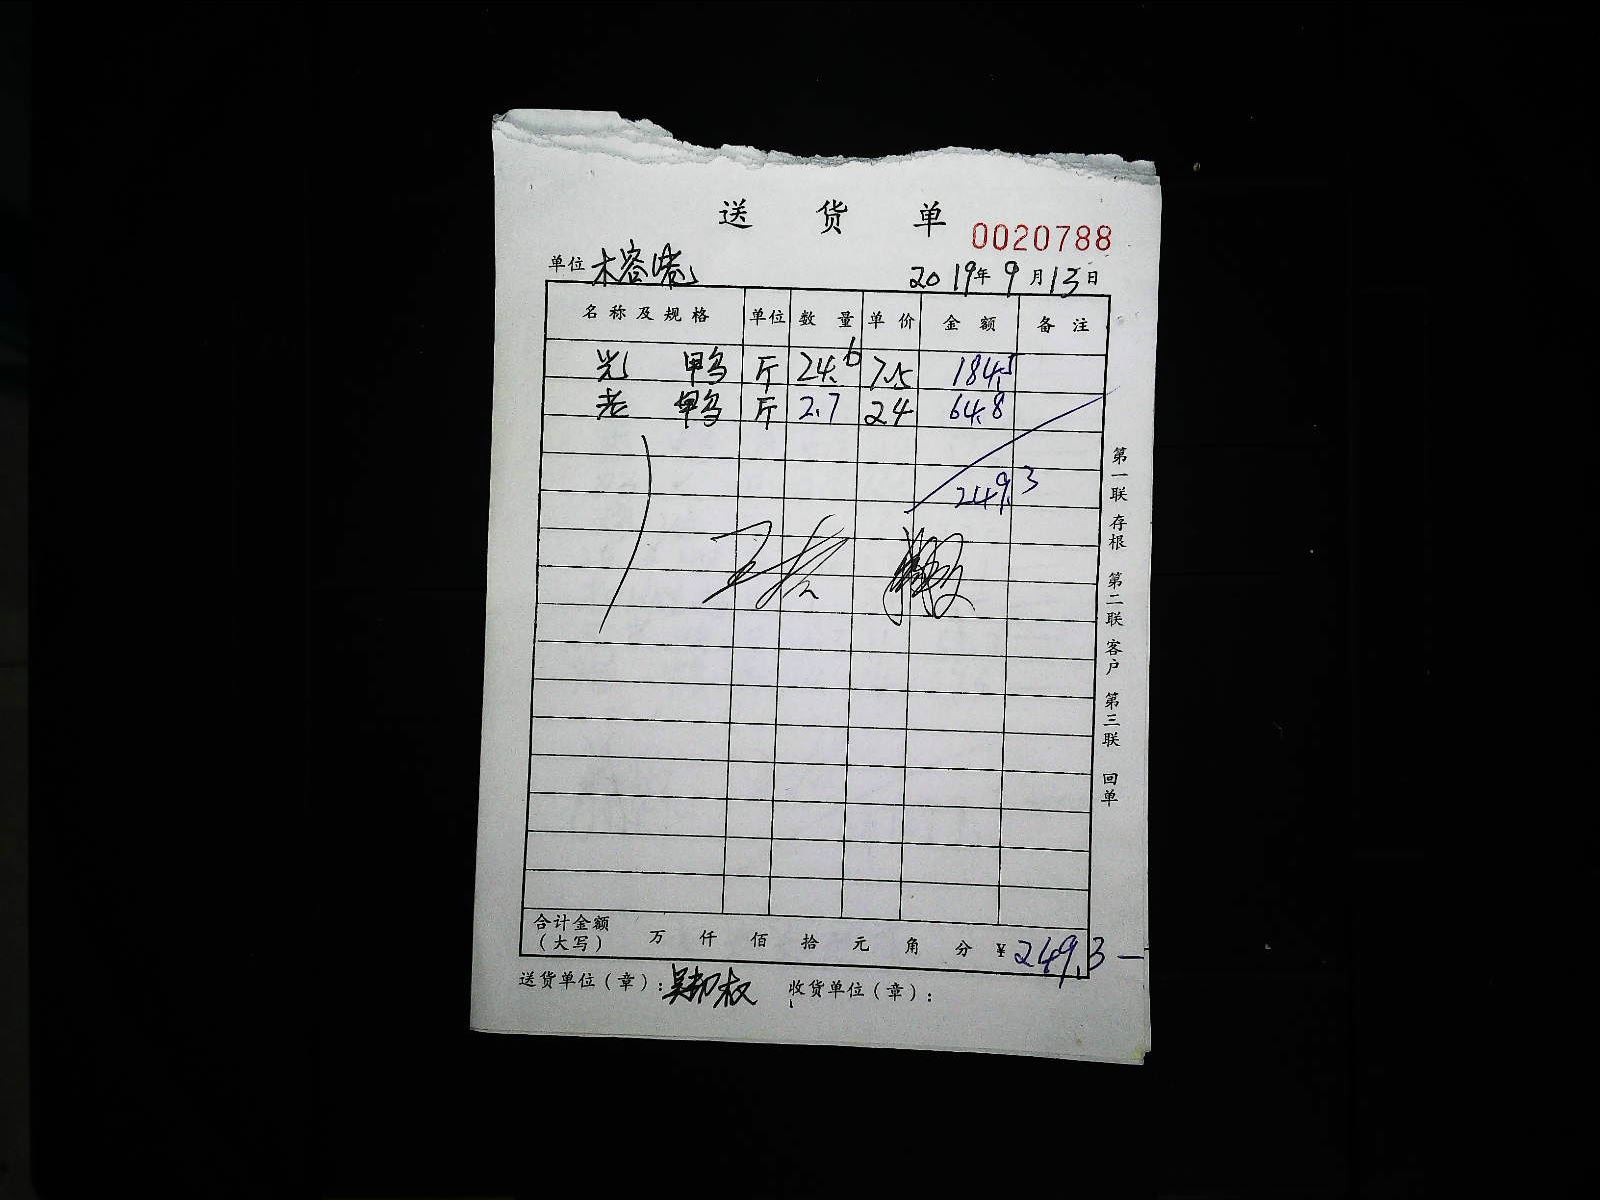 送 货 单
0020788
单位 木容港 2019年9月13日
名称及规格 单位 数量 单价 金额 备注
光 鸭 斤 24.6 7.5 184.5
老 鸭 斤 2.7 24 64.8
249.3
合计金额（大写） 万 仟 佰 拾 元 角 分 ¥249.3—
送货单位（章）: 收货单位（章）:
第一联 存根 第二联 客户 第三联 回单